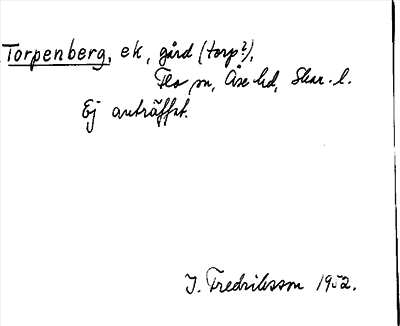 Torpenberg, ek, gård (torp?),
Flo sn, Åse hd, Skar. l.
Ej anträffat.
I. Fredriksson 1952.